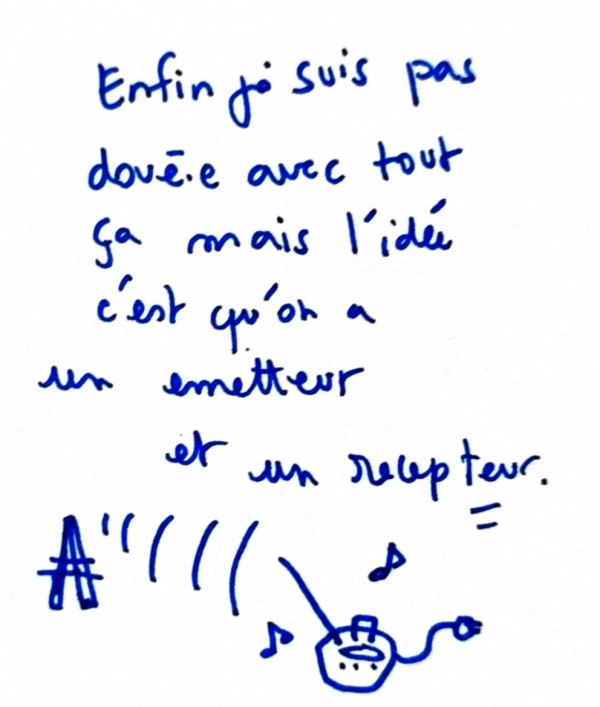 Enfin je suis pas
doué.e avec tout
ça mais l'idée
c'est qu'on a
un emetteur
et un recepteur.